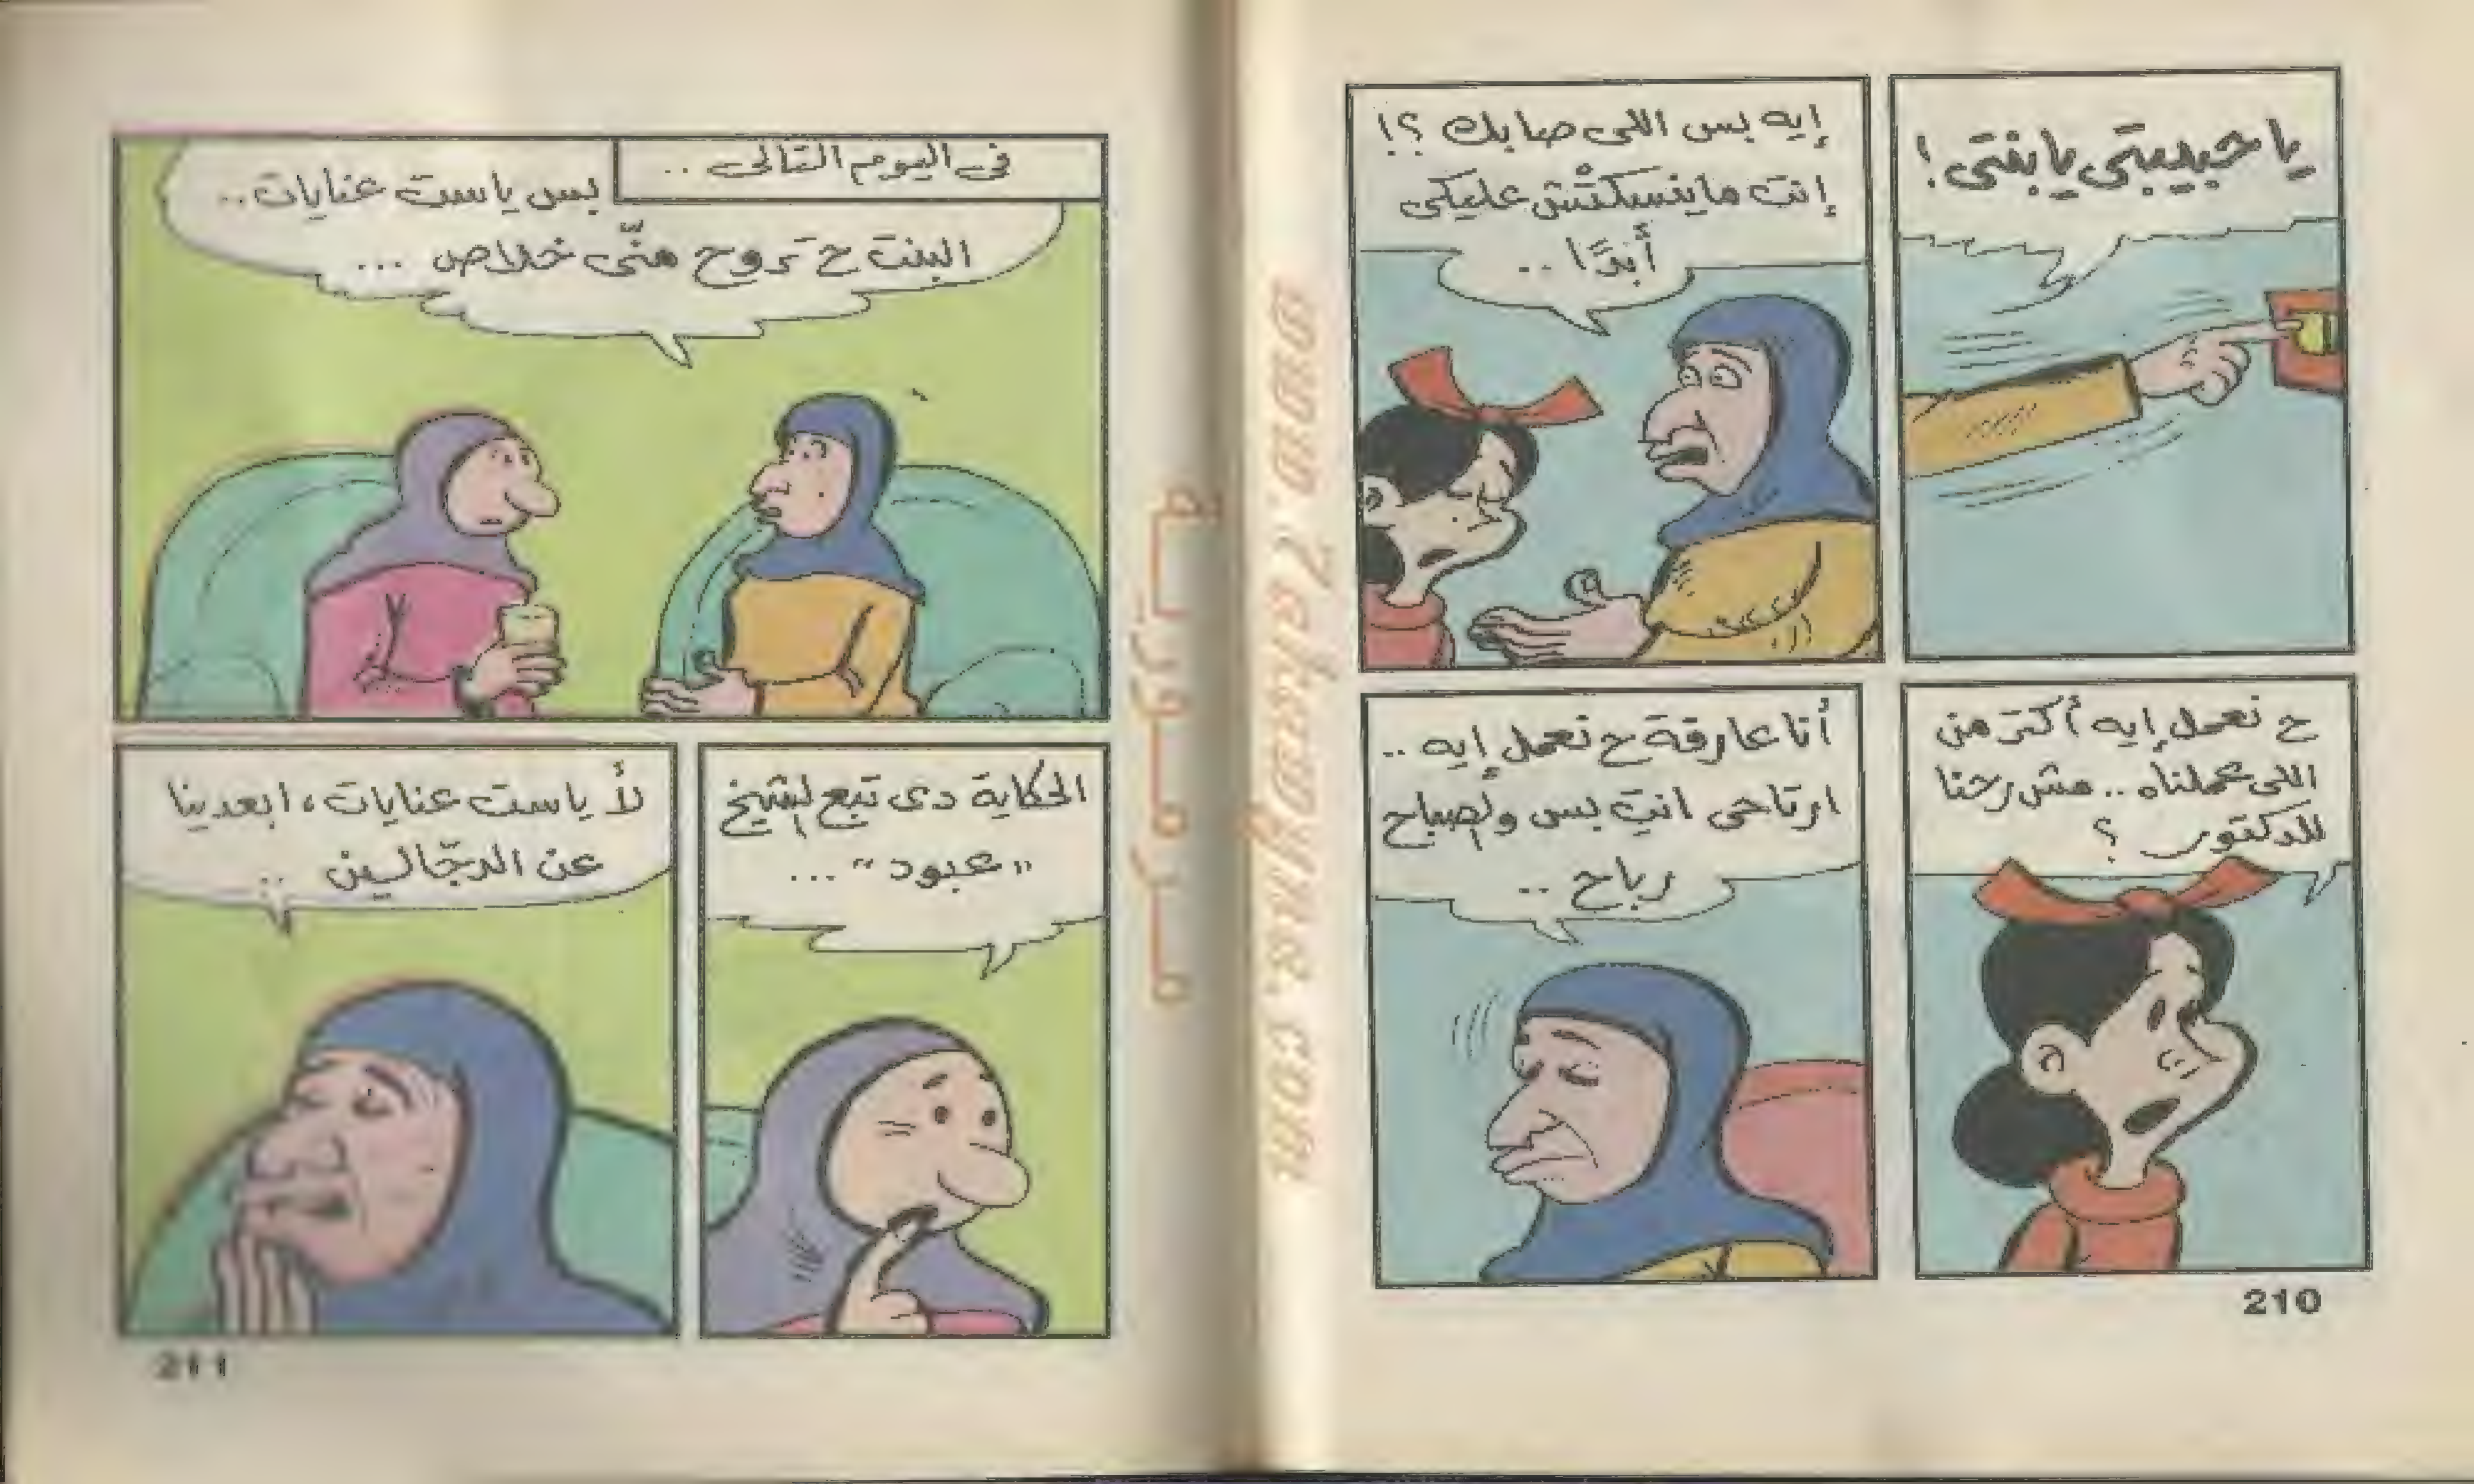 يا حبيبتى يا بنتى !
إيه بس اللى صابك ؟!
إنتِ ما ينسكتْش عليكى
أبدًا ..
ح نعمل إيه أكتر من
اللى عملناه .. مش رحنا
للدكتور ؟
أنا عارفة ح نعمل إيه ..
ارتاحى انتِ بس والصباح
رباح ..
210
فى اليوم التالى ..
بس يا ست عنايات ..
البنت ح تروح منّى خلاص ...
الحكاية دى تبع الشيخ
"عبود" ...
لأ يا ست عنايات، ابعدينا
عن الدجّالين ..
211
مـرمـوريـة